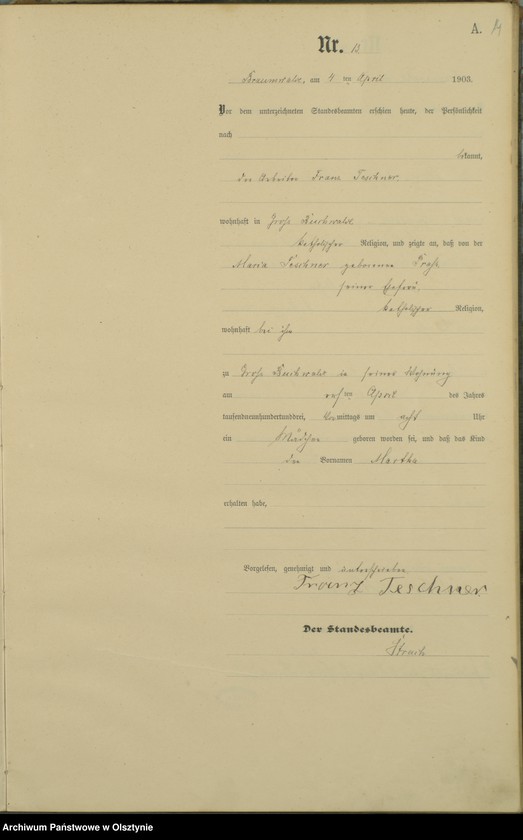 A. 14
Nr. 13
Braunswalde, am 4 ten April 1903.
Vor dem unterzeichneten Standesbeamten erschien heute, der Persönlichkeit
nach
bekannt,
der Arbeiter Franz Teschner
wohnhaft in Groß Buchwalde
katholischer Religion, und zeigte an, daß von der
Maria Teschner geborenen
seiner Ehefrau
katholischer Religion,
wohnhaft bei ihm
zu Groß Buchwalde in seiner Wohnung
am ten April des Jahres
tausendneunhundertunddrei, Vormittags um acht Uhr
ein Mädchen geboren worden sei, und daß das Kind
den Vornamen Martha
erhalten habe,
Vorgelesen, genehmigt und unterschrieben
Franz Teschner
Der Standesbeamte.
Archiwum Państwowe w Olsztynie